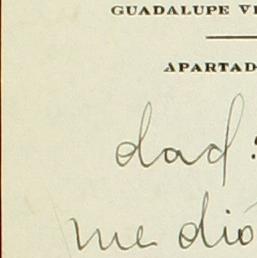 GUADALUPE VI
APARTAD
dad
me dió